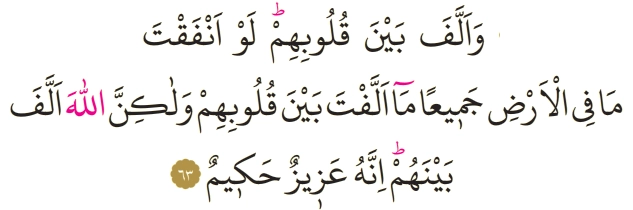 وَاَلَّفَ بَيْنَ قُلُوبِهِمْۜ لَوْ اَنْفَقْتَ
مَا فِي الْاَرْضِ جَم۪يعًا مَٓا اَلَّفْتَ بَيْنَ قُلُوبِهِمْ وَلٰكِنَّ اللّٰهَ اَلَّفَ
بَيْنَهُمْۜ اِنَّهُ عَز۪يزٌ حَك۪يمٌ ﴿٦٣﴾